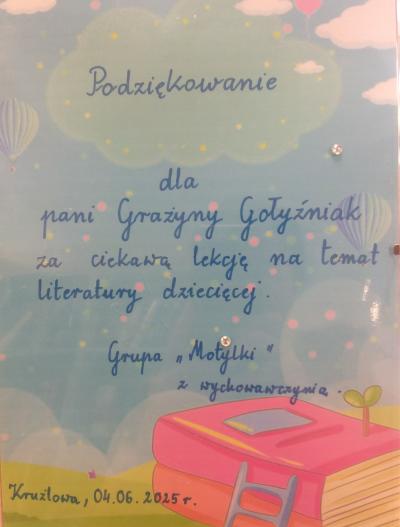 Podziękowanie
dla
pani Grażyny Gołyźniak
za ciekawą lekcję na temat
literatury dziecięcej.
Grupa „Motylki"
z wychowawczynią.
Krużlowa, 04.06.2025 r.